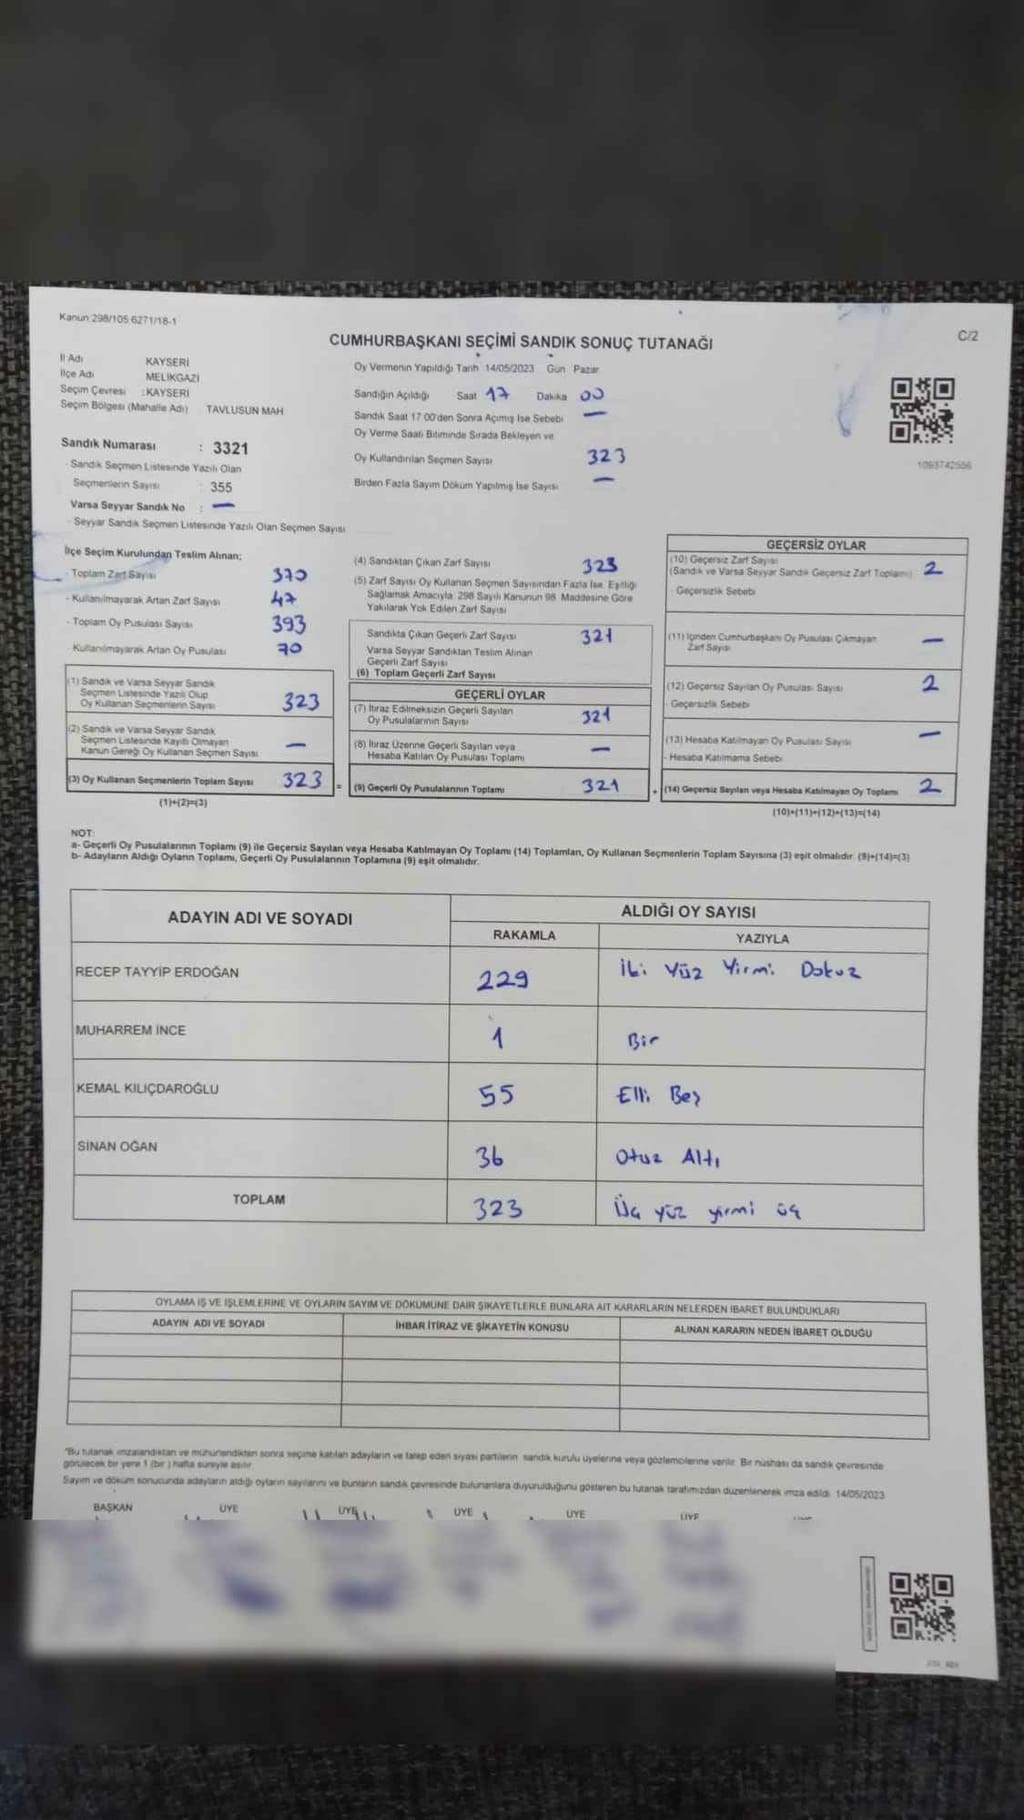 Kanun 298/105 6271/18-1
C/2
CUMHURBAŞKANI SEÇİMİ SANDIK SONUÇ TUTANAĞI
İl Adı KAYSERİ
İlçe Adı MELİKGAZİ
Seçim Çevresi : KAYSERİ
Seçim Bölgesi (Mahalle Adı) TAVLUSUN MAH
Sandık Numarası : 3321
- Sandık Seçmen Listesinde Yazılı Olan
Seçmenlerin Sayısı : 355
Varsa Seyyar Sandık No : —
- Seyyar Sandık Seçmen Listesinde Yazılı Olan Seçmen Sayısı
Oy Vermenin Yapıldığı Tarih 14/05/2023 Gün Pazar
Sandığın Açıldığı Saat 17 Dakika 00
Sandık Saat 17.00'den Sonra Açılmış İse Sebebi —
Oy Verme Saati Bitiminde Sırada Bekleyen ve
Oy Kullandırılan Seçmen Sayısı 323
Birden Fazla Sayım Döküm Yapılmış İse Sayısı —
1093742556
İlçe Seçim Kurulundan Teslim Alınan;
- Toplam Zarf Sayısı 370
- Kullanılmayarak Artan Zarf Sayısı 47
- Toplam Oy Pusulası Sayısı 393
- Kullanılmayarak Artan Oy Pusulası 70
(1) Sandık ve Varsa Seyyar Sandık
Seçmen Listesinde Yazılı Olup
Oy Kullanan Seçmenlerin Sayısı 323
(2) Sandık ve Varsa Seyyar Sandık
Seçmen Listesinde Kayıtlı Olmayan
Kanun Gereği Oy Kullanan Seçmen Sayısı —
(3) Oy Kullanan Seçmenlerin Toplam Sayısı 323 =
(1)+(2)=(3)
(4) Sandıktan Çıkan Zarf Sayısı 323
(5) Zarf Sayısı Oy Kullanan Seçmen Sayısından Fazla İse, Eşitliği
Sağlamak Amacıyla, 298 Sayılı Kanunun 98. Maddesine Göre
Yakılarak Yok Edilen Zarf Sayısı
Sandıkta Çıkan Geçerli Zarf Sayısı 321
Varsa Seyyar Sandıktan Teslim Alınan
Geçerli Zarf Sayısı
(6) Toplam Geçerli Zarf Sayısı
GEÇERLİ OYLAR
(7) İtiraz Edilmeksizin Geçerli Sayılan
Oy Pusulalarının Sayısı 321
(8) İtiraz Üzerine Geçerli Sayılan veya
Hesaba Katılan Oy Pusulası Toplamı —
(9) Geçerli Oy Pusulalarının Toplamı 321 +
GEÇERSİZ OYLAR
(10) Geçersiz Zarf Sayısı
(Sandık ve Varsa Seyyar Sandık Geçersiz Zarf Toplamı) 2
- Geçersizlik Sebebi
(11) İçinden Cumhurbaşkanı Oy Pusulası Çıkmayan
Zarf Sayısı —
(12) Geçersiz Sayılan Oy Pusulası Sayısı 2
- Geçersizlik Sebebi
(13) Hesaba Katılmayan Oy Pusulası Sayısı —
- Hesaba Katılmama Sebebi
(14) Geçersiz Sayılan veya Hesaba Katılmayan Oy Toplamı 2
(10)+(11)+(12)+(13)=(14)
NOT:
a- Geçerli Oy Pusulalarının Toplamı (9) ile Geçersiz Sayılan veya Hesaba Katılmayan Oy Toplamı (14) Toplamları, Oy Kullanan Seçmenlerin Toplam Sayısına (3) eşit olmalıdır. (9)+(14)=(3)
b- Adayların Aldığı Oyların Toplamı, Geçerli Oy Pusulalarının Toplamına (9) eşit olmalıdır.
ADAYIN ADI VE SOYADI ALDIĞI OY SAYISI
RAKAMLA YAZIYLA
RECEP TAYYİP ERDOĞAN 229 İki Yüz Yirmi Dokuz
MUHARREM İNCE 1 Bir
KEMAL KILIÇDAROĞLU 55 Elli Beş
SİNAN OĞAN 36 Otuz Altı
TOPLAM 323 Üç yüz yirmi üç
OYLAMA İŞ VE İŞLEMLERİNE VE OYLARIN SAYIM VE DÖKÜMÜNE DAİR ŞİKAYETLERLE BUNLARA AİT KARARLARIN NELERDEN İBARET BULUNDUKLARI
ADAYIN ADI VE SOYADI İHBAR İTİRAZ VE ŞİKAYETİN KONUSU ALINAN KARARIN NEDEN İBARET OLDUĞU
*Bu tutanak imzalandıktan ve mühürlendikten sonra seçime katılan adayların ve talep eden siyasi partilerin sandık kurulu üyelerine veya gözlemcilerine verilir. Bir nüshası da sandık çevresinde
görülecek bir yere 1 (bir) hafta süreyle asılır.
Sayım ve döküm sonucunda adayların aldığı oyların sayılarını ve bunların sandık çevresinde bulunanlara duyurulduğunu gösteren bu tutanak tarafımızdan düzenlenerek imza edildi. 14/05/2023
BAŞKAN ÜYE ÜYE ÜYE ÜYE ÜYE